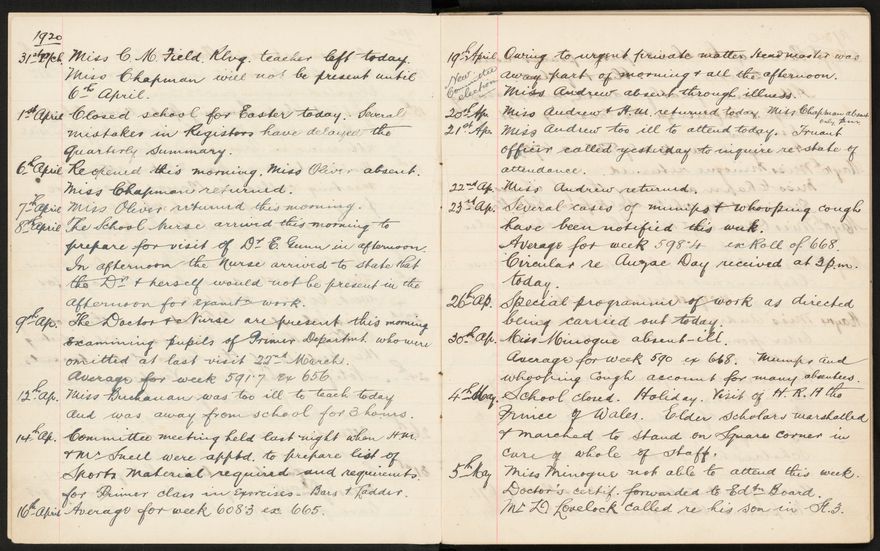 1920
31st Mch. Miss C. M. Field, Rlvg. teacher left today.
Miss Chapman will not be present until
6th April.
1st April Closed school for Easter today. Several
mistakes in Registers have delayed the
Quarterly Summary.
6th April Reopened this morning. Miss Oliver absent.
Miss Chapman returned.
7th April Miss Oliver returned this morning.
8th April The School Nurse arrived this morning to
prepare for visit of Dr E. Gunn in afternoon.
In afternoon the Nurse arrived to state that
the Dr & herself would not be present in the
afternoon for examtn work.
9th Ap. The Doctor & Nurse are present this morning
examining pupils of Primer Departmt who were
omitted at last visit 22nd March.
Average for week 591.7 ex 656
12th Ap. Miss Buchanan was too ill to teach today
and was away from school for 3 hours.
14th Ap. Committee meeting held last night when H.M.
& Mr Snell were apptd. to prepare list of
Sports Material required and requiremts.
for Primer class in Exercises - Bars & Ladder.
16th April Average for week 608.3 ex 665.
19th April Owing to urgent private matter Headmaster was
away part of morning & all the afternoon.
New Committee election
Miss Andrew absent through illness.
20th Ap. Miss Andrew & H.M. returned today. Miss Chapman absent
21st Ap. Miss Andrew too ill to attend today. Truant
officer called yesterday to inquire re state of
attendance.
22nd Ap. Miss Andrew returned.
23rd Ap. Several cases of mumps & whooping cough
have been notified this week.
Average for week 598.4 ex Roll of 668.
Circular re Anzac Day received at 2 p.m.
today.
26th Ap. Special programme of work as directed
being carried out today.
30th Ap. Miss Minogue absent - ill.
Average for week 590 ex 668. Mumps and
whooping Cough account for many absentees.
4th May. School closed. Holiday. Visit of H.R.H the
Prince of Wales. Elder Scholars marshalled
& marched to stand on Square corner in
care of whole of Staff.
5th May Miss Minogue not able to attend this week.
Doctor's certif. forwarded to Edtn Board.
Mr D Lovelock called re his son in St. 3.